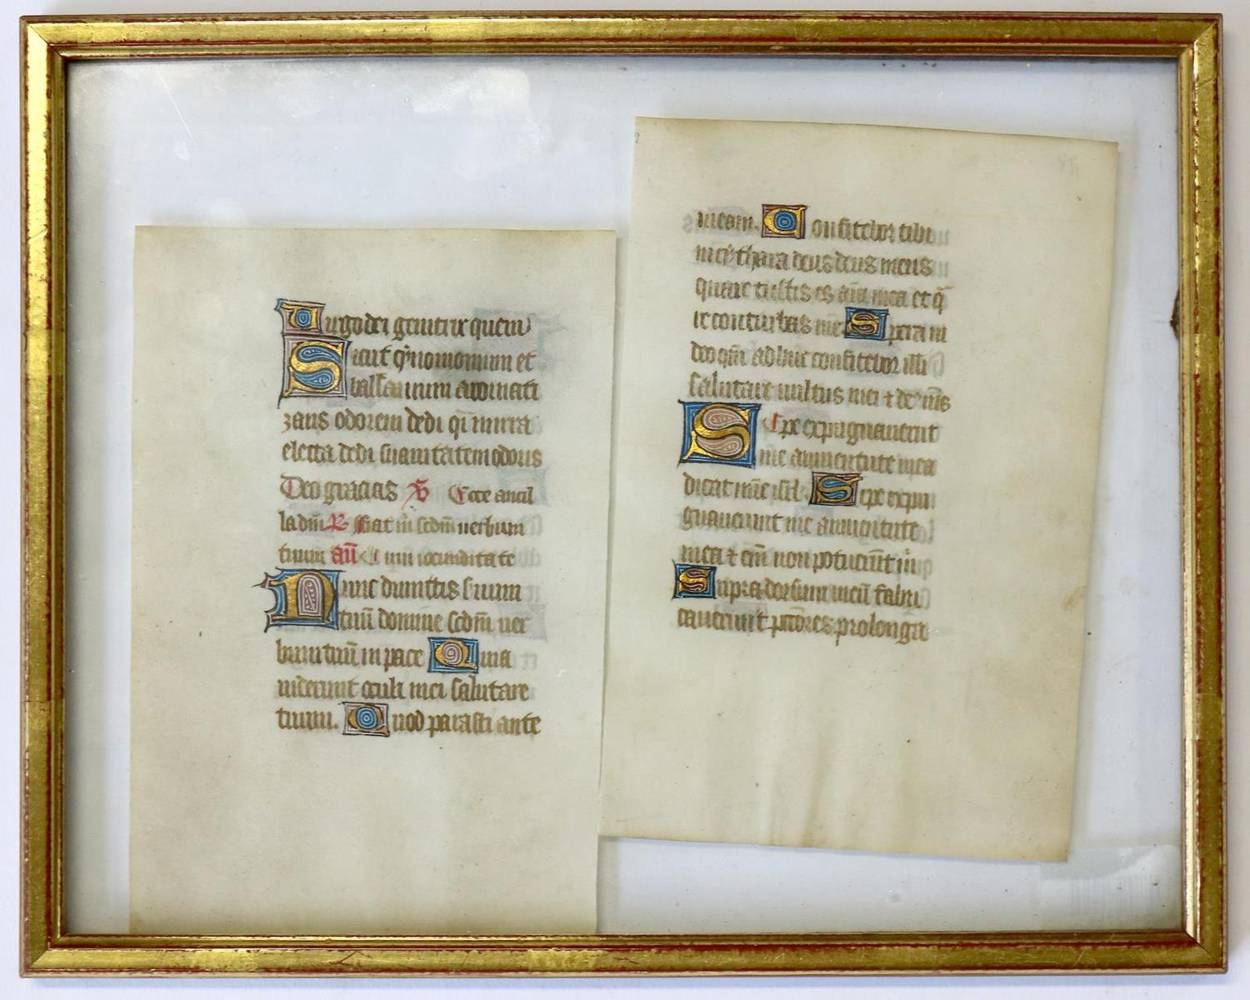 Virgo dei genitrix quem
Sicut cynomomum et
balsamum aromati
zans odorem dedi q̄i mirra
electa dedi suauitatem odoris
Deo gracias ℣ Ecce ancil
la dn̄i ℟ Fiat m̄ scdm̄ uerbum
tuum an̄ Cum iocunditate
Nunc dimittis seruum
tuū domine scdm̄ uer
bum tuū in pace Quia
uiderunt oculi mei salutare
tuum. Quod parasti ante
meam. Confitebor tibi
in cythara deus deus meus
quare tristis es aīa mea et q̄
re conturbas me Spera in
deo qm̄ adhuc confitebor illi
salutare uultus mei ⁊ de᷒ m̄s
Sepe expugnauerunt
me a iuuentute mea
dicat nūc isrl. Sepe expu
gnauerunt me a iuuentute
mea ⁊ em̄ non potuerūt m̄
Supra dorsum meū fabri
cauerunt pccōres prolongauerunt